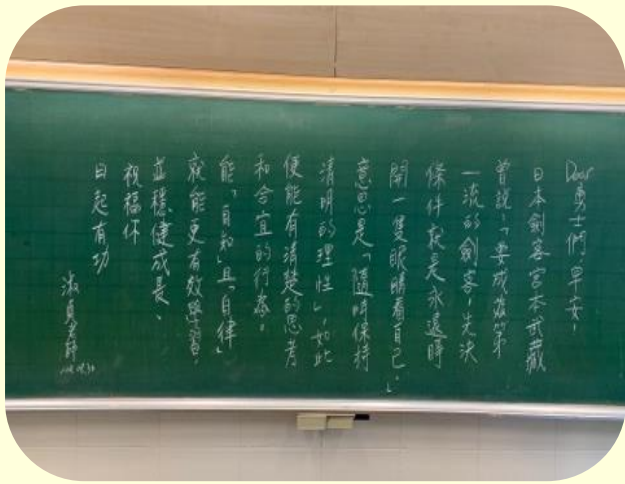 Dear 勇士們早安！
日本劍客宮本武藏
曾說：「要成為第
一流的劍客，先決
條件就是永遠睜
開一隻眼睛看自己。」
意思是「隨時保持
清明的理性」，如此
便能有清楚的思考
和合宜的行為。
能「自知」且「自律」
就能更有效學習，
並穩健成長、
祝福你
日起有功
淑貞老師